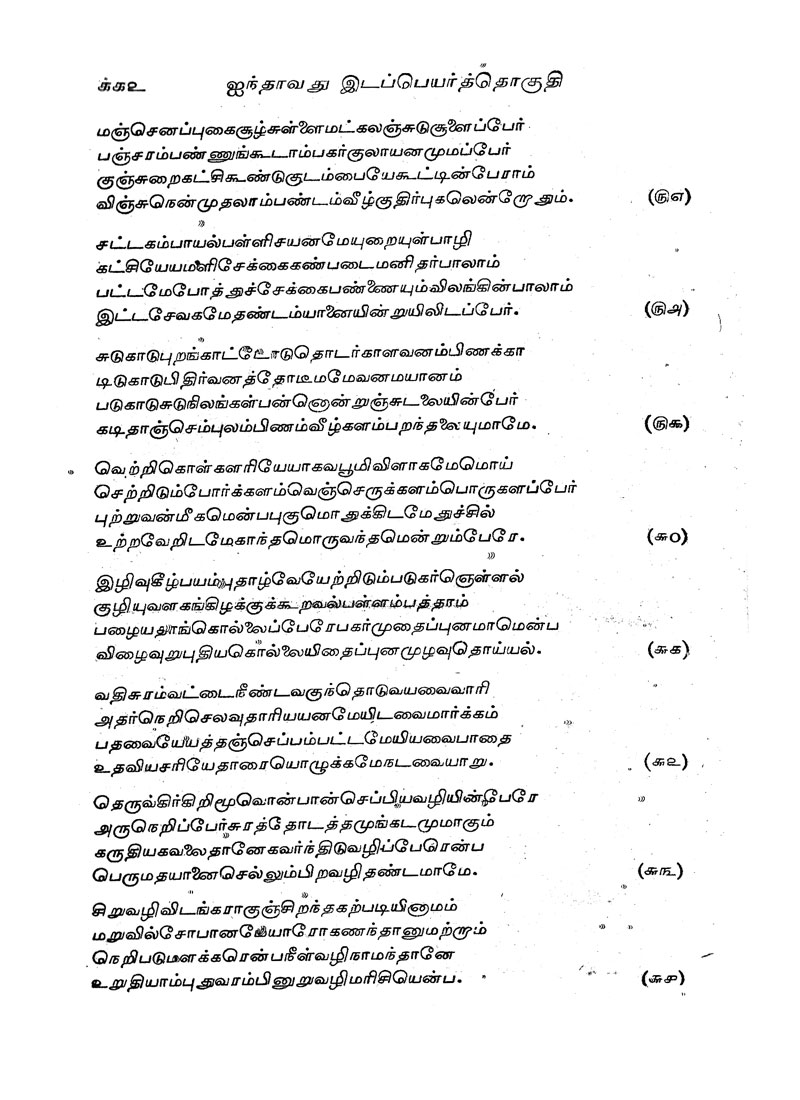 ௧௧௨ ஐந்தாவது இடப்பெயர்த்தொகுதி
மஞ்செனப்புகைசூழ்சுள்ளைமட்கலஞ்சுடுசூளைப்பேர்
பஞ்சரம்பண்ணுங்கூடாம்பகர்குலாயனமுமப்பேர்
குஞ்சுறைகட்சிகூண்டுகுடம்பையேகூட்டின்பேராம்
விஞ்சுநென்முதலாம்பண்டம்வீழ்குதிர்புகலென்றோதும். (௫௭)
சட்டகம்பாயல்பள்ளிசயனமேயுறையுள்பாழி
கட்சியேயமளிசேக்கைகண்படைமனிதர்பாலாம்
பட்டமேபோத்துச்சேக்கைபண்ணையும்விலங்கின்பாலாம்
இட்டசேவகமேதண்டம்யானையின்றுயிலிடப்பேர். (௫௮)
சுடுகாடுபுறங்காட்டோடுதொடர்காளவனம்பிணக்கா
டிடுகாடுபிதிர்வனத்தோடீமமேவனமயானம்
படுகாடுசுடுநிலங்கள்பன்னொன்றுஞ்சுடலையின்பேர்
கடிதாஞ்செம்புலம்பிணம்வீழ்களம்பறந்தலையுமாமே. (௫௯)
வெற்றிகொள்களரியேயாகவபூமிவிளாகமேமொய்
செற்றிடும்போர்க்களம்வெஞ்செருக்களம்பொருகளப்பேர்
புற்றுவன்மீகமென்பபுகுமொதுக்கிடமேதுச்சில்
உற்றவேறிடமேகாந்தமொருவந்தமென்றும்பேரே. (௬௦)
இழிவுகீழ்பயம்புதாழ்வேயேற்றிடும்படுகர்ஞெள்ளல்
குழியுவளகங்கிழக்குக்கூறவல்பள்ளம்பத்தாம்
பழையதூங்கொல்லைப்பேரேபகர்முதைப்புனமாமென்ப
விழைவுறுபுதியகொல்லையிதைப்புனமுழவுதொய்யல். (௬௧)
வதிசுரம்வட்டைநீண்டவகுந்தொடுவயவைவாரி
அதர்நெறிசெலவுதாரியயனமேயிடவைமார்க்கம்
பதவையேயத்தஞ்செப்பம்பட்டமேயியவைபாதை
உதவியசரியேதாரையொழுக்கமேநடவையாறு. (௬௨)
தெருவ்கிர்கிறிமூவொன்பான்செப்பியவழியின்பேரே
அருநெறிப்பேர்சுரத்தோடத்தமுங்கடமுமாகும்
கருதியகவலைதானேகவர்ந்திடுவழிப்பேரென்ப
பெருமதயானைசெல்லும்பிறவழிதண்டமாமே. (௬௩)
சிறுவழிவிடங்கராகுஞ்சிறந்தகற்படியினாமம்
மறுவில்சோபானமேயாரோகணந்தானுமற்றாம்
நெறிபடுமளக்கரென்பநீள்வழிநாமந்தானே
உறுதியாம்புதுவரம்பினுறுவழிமரிசியென்ப. (௬௪)